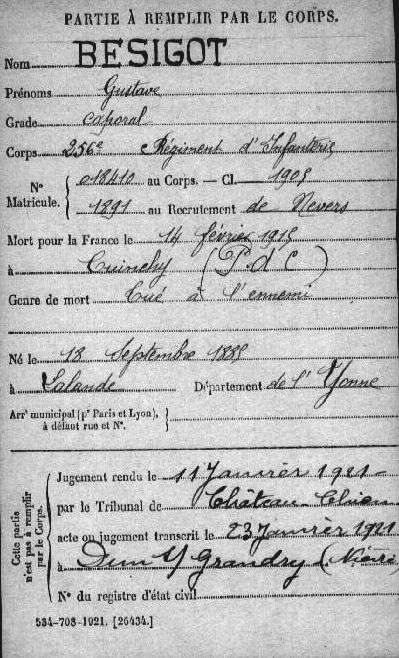 PARTIE À REMPLIR PAR LE CORPS.
Nom BESIGOT
Prénoms Gustave
Grade caporal
Corps 256e Régiment d'Infanterie
N° Matricule. { 018410 au Corps. — Cl. 1905
1891 au Recrutement de Nevers
Mort pour la France le 14 février 1915
à Cuinchy (P. d C)
Genre de mort Tué à l'ennemi
Né le 18 Septembre 1885
à Lalande Département de l'Yonne
Arrt municipal (pr Paris et Lyon), à défaut rue et N°. {
Cette partie n'est pas à remplir par le Corps.
Jugement rendu le 11 Janvier 1921
par le Tribunal de Château-Chinon
acte ou jugement transcrit le 23 Janvier 1921
à Dun s/ Grandry (Nièvre)
N° du registre d'état civil
534-708-1921. [26434.]